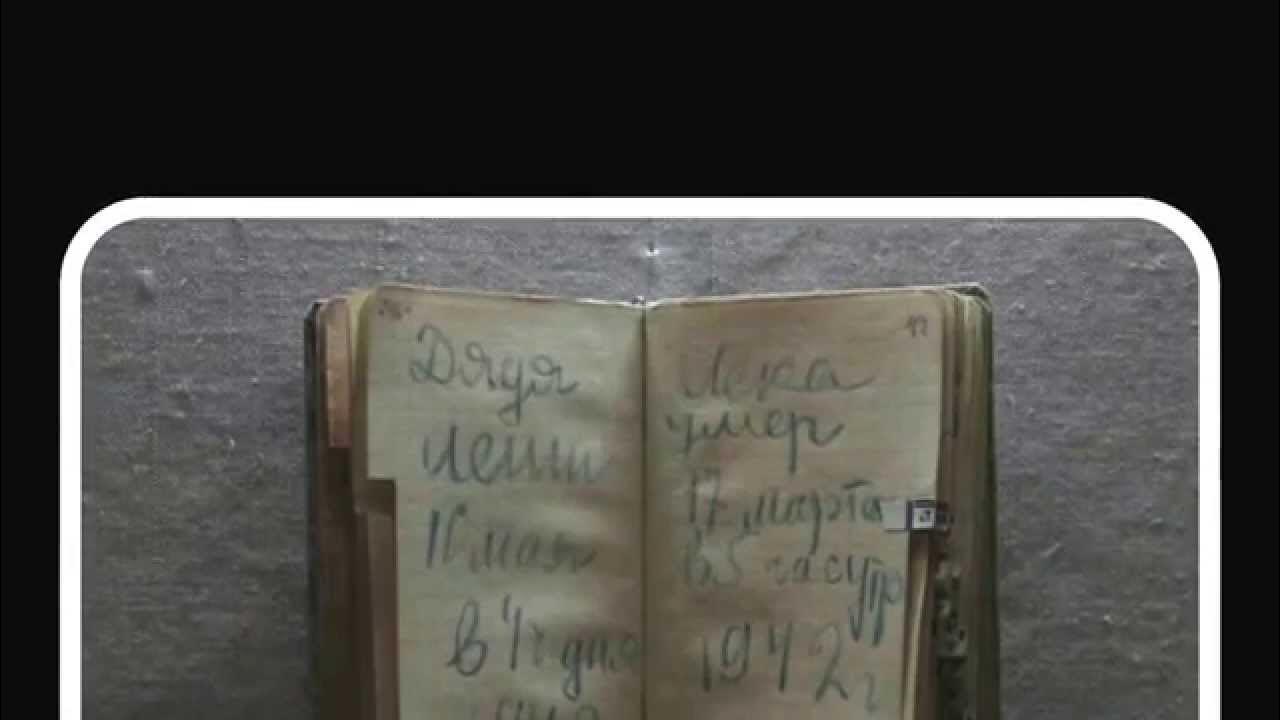 Дядя
Леша
10 мая
в 4 ч дня
Лека
умер
17 марта
в 5 час утр
1942 г